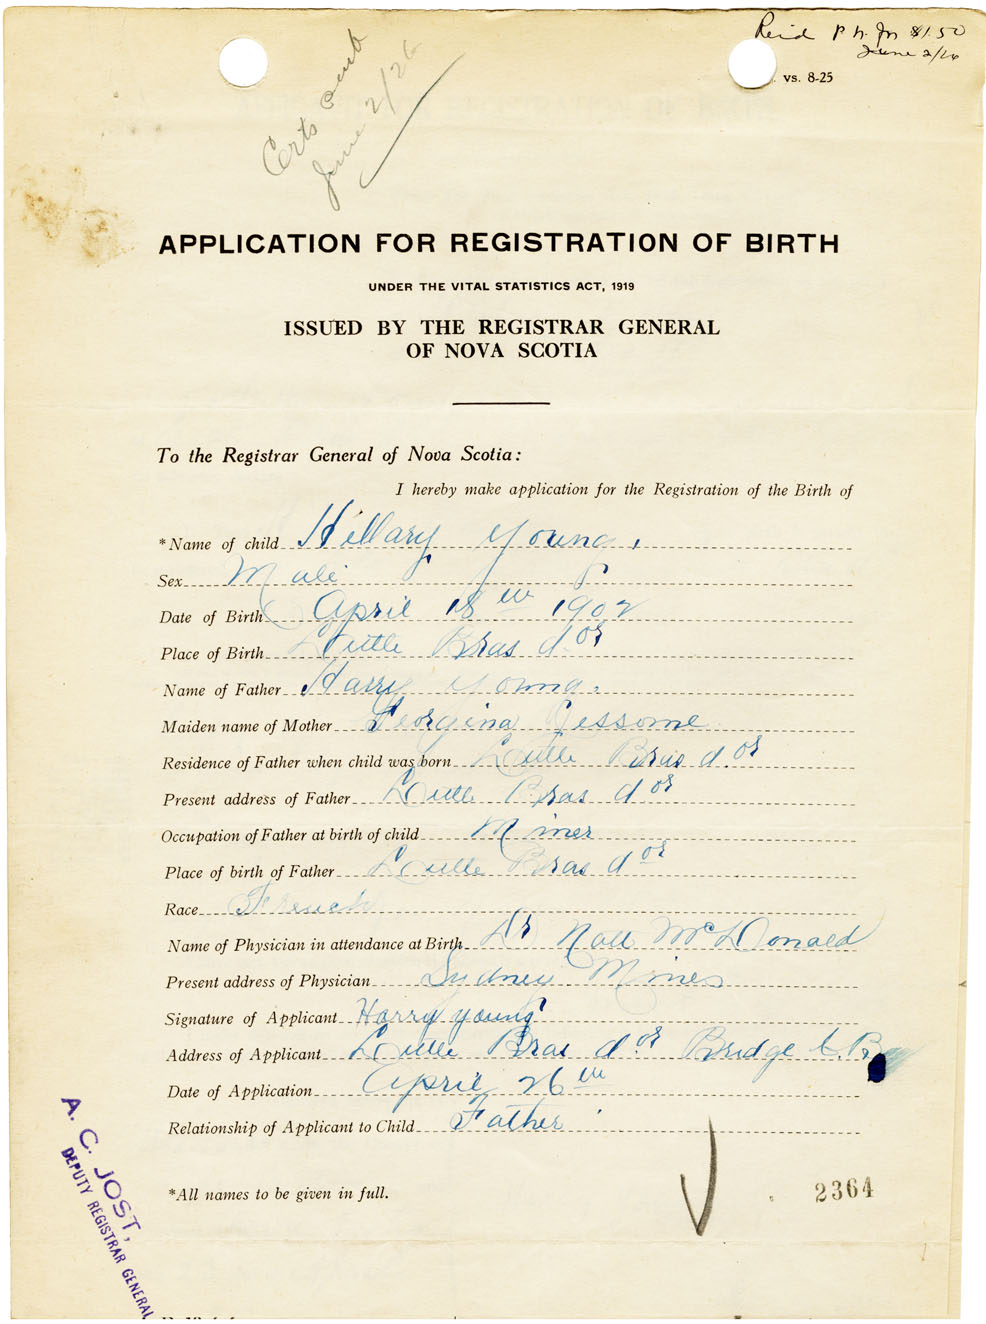 Certs sent
June 2/26
P. N. for $1.50
June 2/26
vs. 8-25
APPLICATION FOR REGISTRATION OF BIRTH
UNDER THE VITAL STATISTICS ACT, 1919
ISSUED BY THE REGISTRAR GENERAL
OF NOVA SCOTIA
To the Registrar General of Nova Scotia:
I hereby make application for the Registration of the Birth of
*Name of child Hillary Young.
Sex Male
Date of Birth April 18th 1902
Place of Birth Little Bras d'or
Name of Father Harry Young.
Maiden name of Mother Georgina Jessome
Residence of Father when child was born Little Bras d'or
Present address of Father Little Bras d'or
Occupation of Father at birth of child Miner
Place of birth of Father Little Bras d'or
Race French
Name of Physician in attendance at Birth Dr Nall McDonald
Present address of Physician Sydney Mines
Signature of Applicant Harry young
Address of Applicant Little Bras d'or Bridge C.B
Date of Application April 26th
Relationship of Applicant to Child Father
*All names to be given in full.
2364
A. C. JOST,
DEPUTY REGISTRAR GENERAL